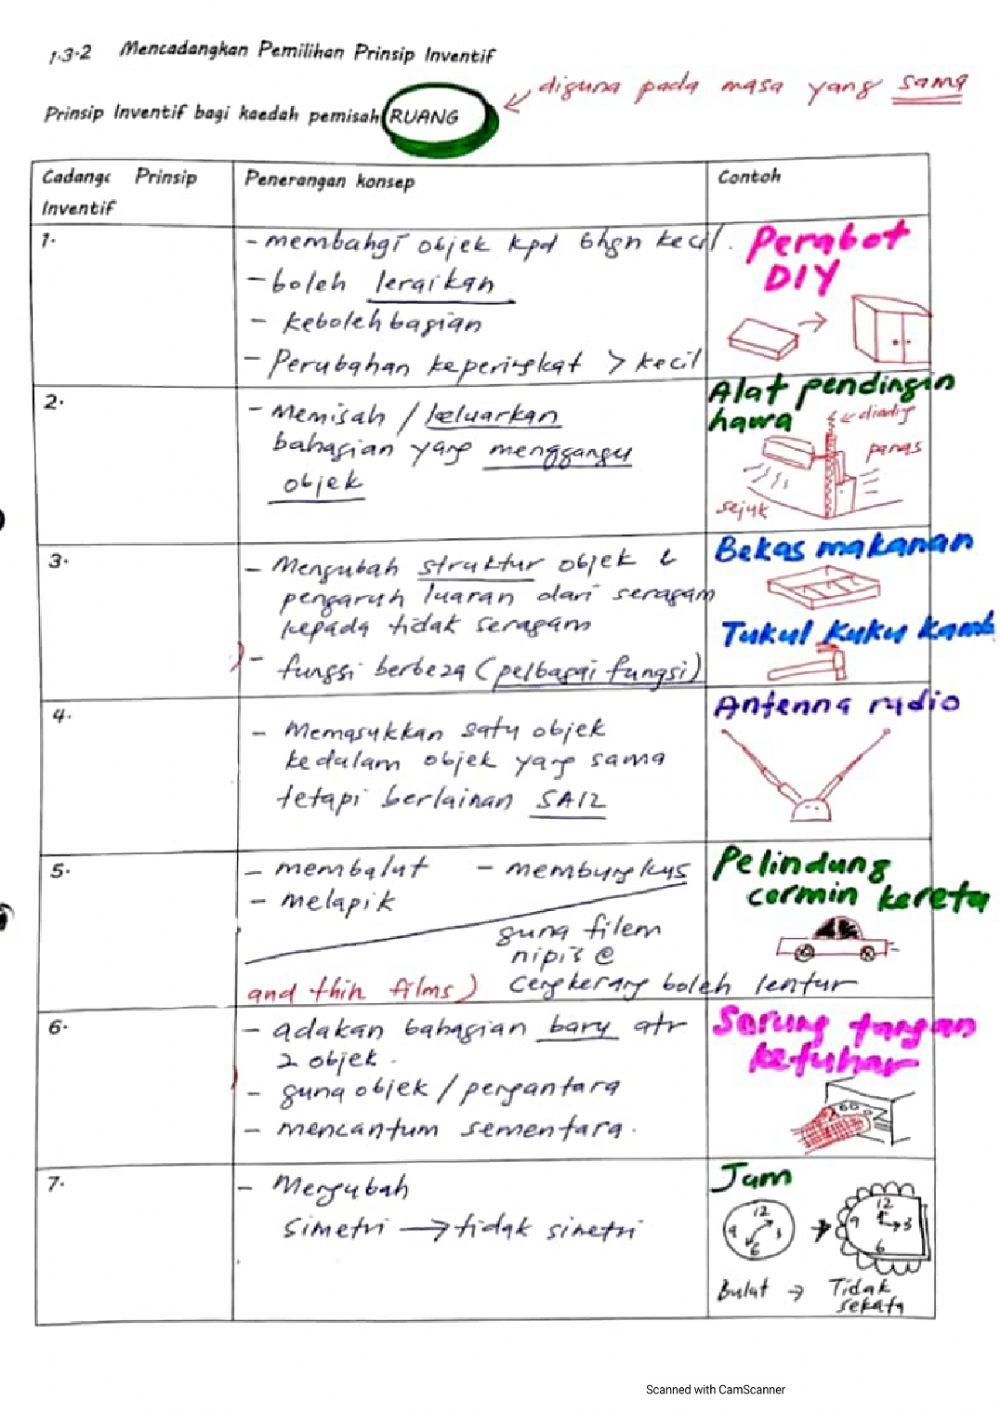 1.3.2 Mencadangkan Pemilihan Prinsip Inventif
diguna pada masa yang sama
Prinsip Inventif bagi kaedah pemisah RUANG
Cadang Prinsip
Inventif
Penerangan konsep
Contoh
1.
- membahgi objek kpd bhgn kecil.
- boleh leraikan
- kebolehbagian
- Perubahan keperingkat > kecil
Perabot
DIY
2.
- Memisah / keluarkan
bahagian yang menggangu
objek
Alat pendingin
hawa
panas
sejuk
3.
- Mengubah struktur objek &
pengaruh luaran dari seragam
kepada tidak seragam
- fungsi berbeza (pelbagai fungsi)
Bekas makanan
Tukul kuku kamb
4.
- Memasukkan satu objek
kedalam objek yang sama
tetapi berlainan SAIZ
Antenna radio
5.
- membalut - membungkus
- melapik
guna filem
nipis @
and thin films) cengkerang boleh lentur
Pelindung
cermin kereta
6.
- adakan bahagian baru atr
2 objek.
- guna objek / perantara
- mencantum sementara.
Sarung tangan
ketuhar
7.
- Mengubah
simetri → tidak simetri
Jam
12
9 3
6
12
9 3
6
Bulat → Tidak
sekata
Scanned with CamScanner